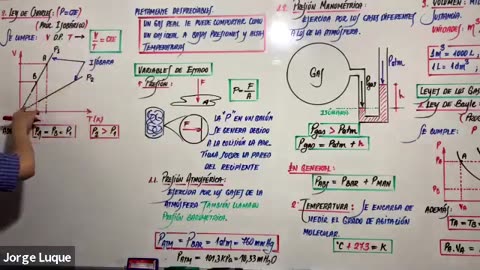 2. Ley de Charles: (P=CTE)
(Proc. Isobárico)
Se cumple: V D.P. T
V
T
= CTE
V
P1
Isóbara
B
A
P2
T(K)
PA = PB = P1
P2 > P1
pletamente despreciables.
Un gas real se puede comportar como
un gas ideal a bajas presiones y altas
temperaturas
Variables de Estado
1. Presión:
F
P = F
A
F
La "P" en un balón
se genera debido
a la colisión la par
tícula sobre la pared
del recipiente
1.1. Presión Atmosférica:
Ejercida por los gases de la
atmósfera también llamada
presión barométrica.
PATM = PBAR = 1atm = 760 mmHg
PATM = 101.3KPa = 10,33mH2O
Presión Manométrica:
Ejercida por los gases diferentes
a los de la atmósfera.
GAS
Patm
Pgas
h
Pgas > Patm
Pgas = Patm + h
En general:
PABS = PBAR + PMAN
2. Temperatura: Se encarga de
medir el grado de agitación
molecular.
°C + 273 = K
3. Volumen:
sustancia.
Unidades:
1m³ = 1000 L
1L = 1dm³
Leyes de los
1. Ley de Boyle
Se cumple: P
P
PA
A
PB
Además:
TA = TB
PA.VA =
Jorge Luque